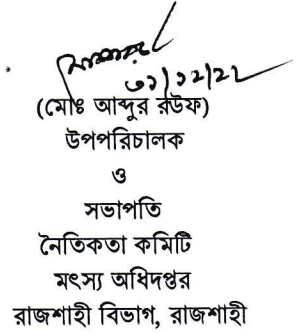 ৩১/১২/২২
(মোঃ আব্দুর রউফ)
উপপরিচালক
ও
সভাপতি
নৈতিকতা কমিটি
মৎস্য অধিদপ্তর
রাজশাহী বিভাগ, রাজশাহী